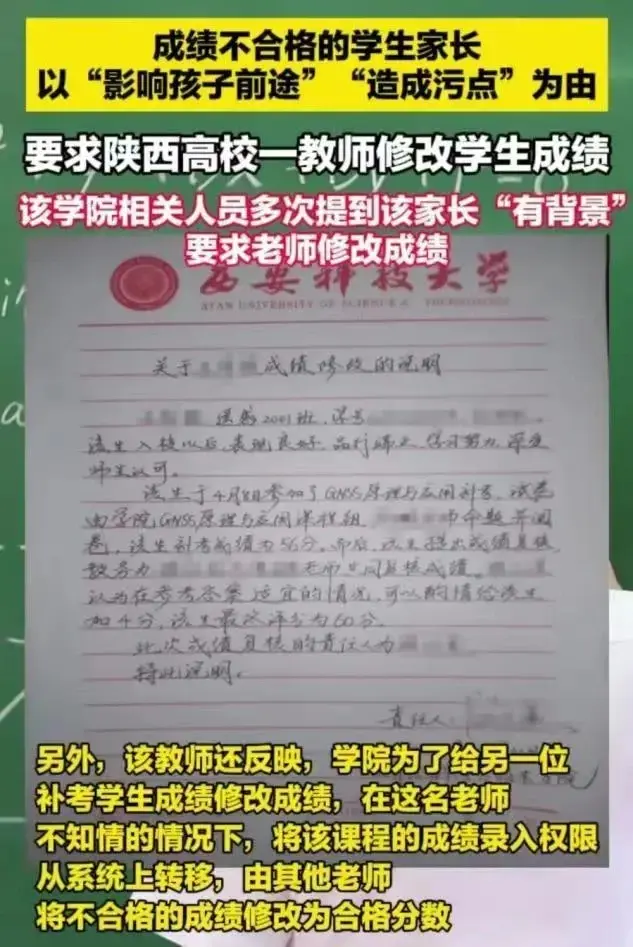 成绩不合格的学生家长
以“影响孩子前途”“造成污点”为由
要求陕西高校一教师修改学生成绩
该学院相关人员多次提到该家长“有背景”
要求老师修改成绩
西安科技大学
XI'AN UNIVERSITY OF SCIENCE & TECHNOLOGY
关于 成绩修改的说明
2001班，学号
该生入校以后，表现良好，品行端正，学习努力，深受
师生认可。
该生于4月8日参加了GNSS原理与应用补考，试卷
由学院GNSS原理与应用课程组 命题并阅
卷，该生补考成绩为56分。而后，该生提出成绩复核
教务办 老师共同复核成绩。
认为在参考答案适宜的情况，可以酌情给该生
加4分，该生最终评分为60分。
此次成绩复核的责任人为
特此说明。
责任人：
另外，该教师还反映，学院为了给另一位
补考学生成绩修改成绩，在这名老师
不知情的情况下，将该课程的成绩录入权限
从系统上转移，由其他老师
将不合格的成绩修改为合格分数